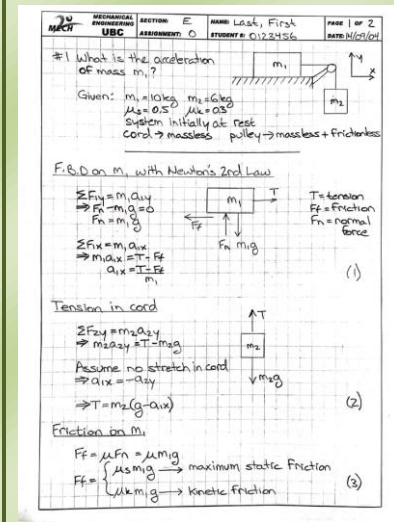 2° MECH
MECHANICAL ENGINEERING UBC
SECTION: E
ASSIGNMENT: 0
NAME: Last, First
STUDENT #: 0123456
PAGE 1 OF 2
DATE: 14/09/04
#1 What is the acceleration
of mass m₁?
m₁
y
x
m₂
Given: m₁=10kg m₂=6kg
μs=0.5 μk=0.3
system initially at rest
cord → massless pulley → massless + frictionless
F.B.D on m₁ with Newton's 2nd Law
ΣF₁y=m₁a₁y
⇒ Fn-m₁g=0
Fn=m₁g
m₁
T
Ff
Fn m₁g
T=tension
Ff=friction
Fn=normal
force
ΣF₁x=m₁a₁x
⇒ m₁a₁x=T-Ff
a₁x=T-Ff
m₁
(1)
Tension in cord
ΣF₂y=m₂a₂y
⇒ m₂a₂y=T-m₂g
Assume no stretch in cord
⇒ a₁x=-a₂y
⇒T=m₂(g-a₁x)
T
m₂
m₂g
(2)
Friction on m₁
Ff=μFn=μm₁g
Ff={μsm₁g → maximum static friction
μkm₁g → kinetic friction
(3)